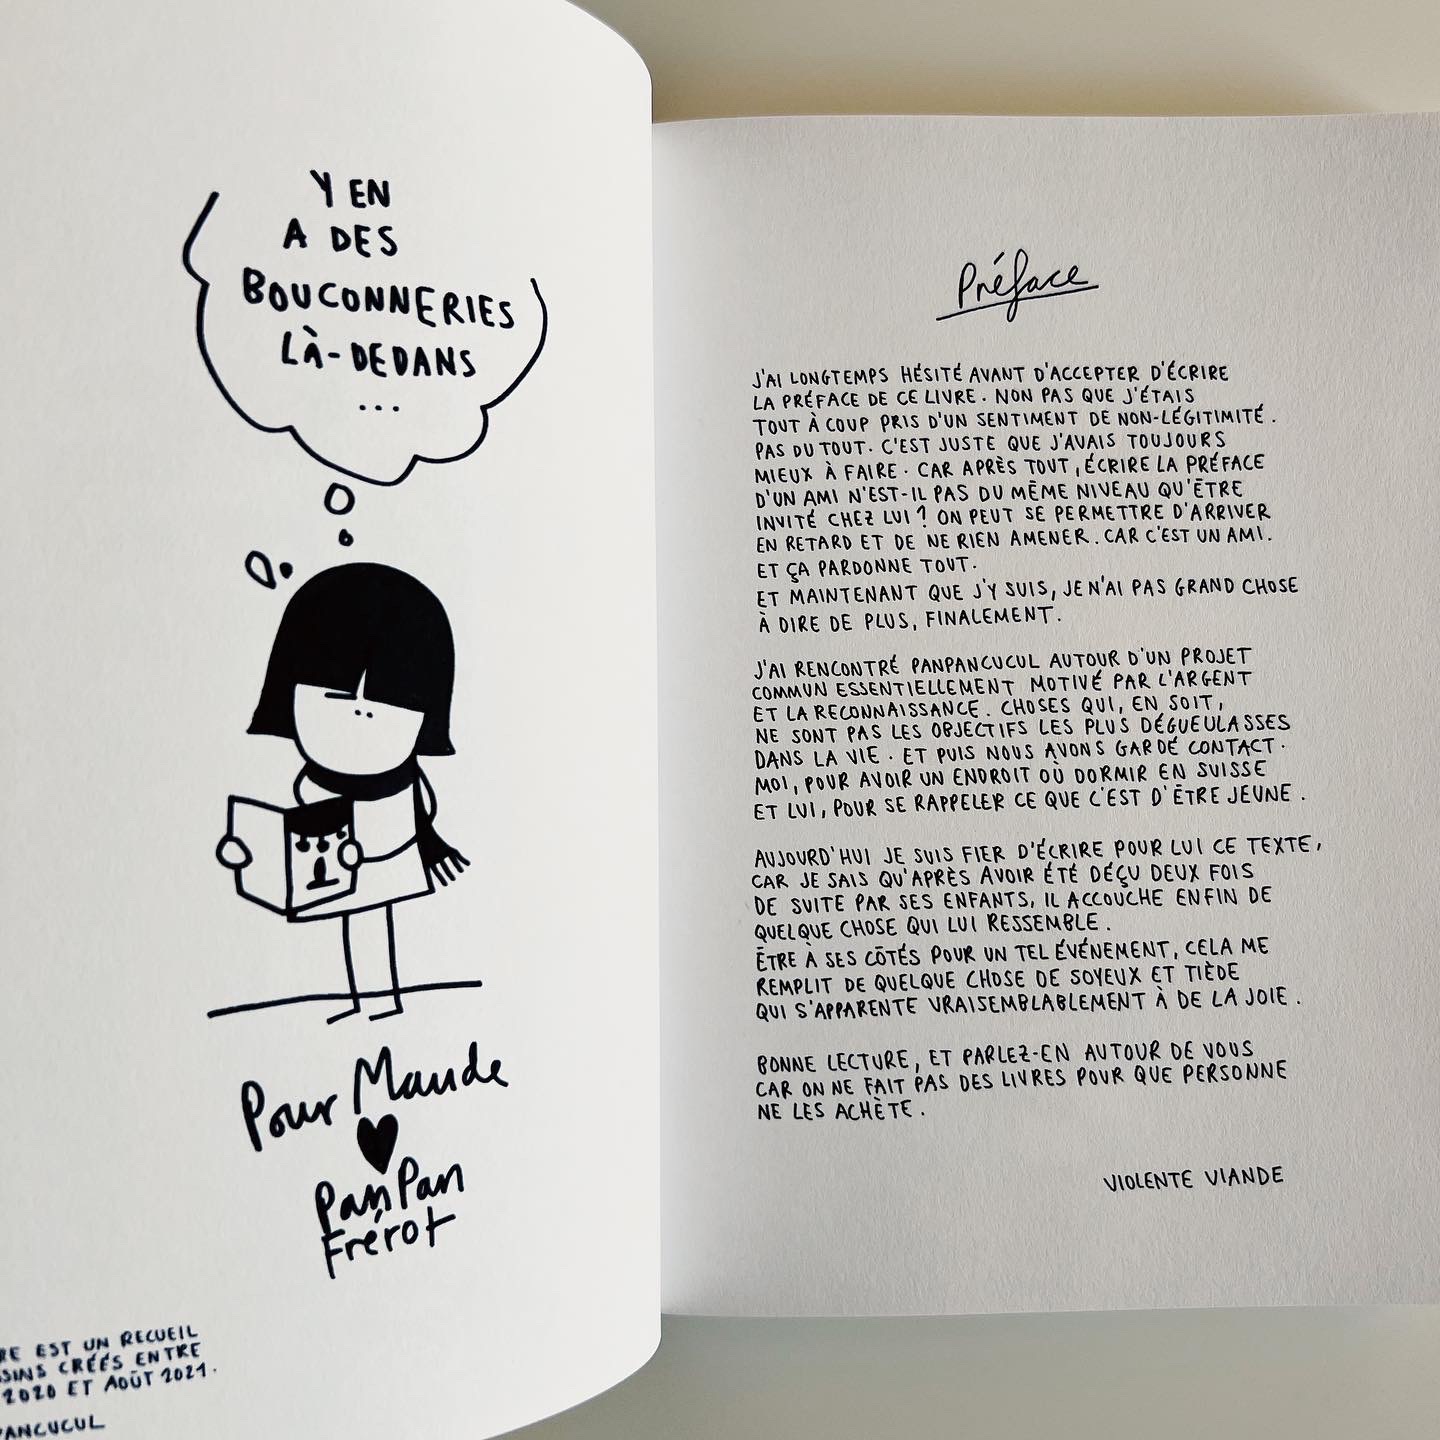 Y EN
A DES
BOUCONNERIES
LÀ-DEDANS
...
Pour Maude
PanPan
Frérot
EST UN RECUEIL
CRÉÉS ENTRE
2020 ET AOÛT 2021.
Préface
J'AI LONGTEMPS HÉSITÉ AVANT D'ACCEPTER D'ÉCRIRE
LA PRÉFACE DE CE LIVRE. NON PAS QUE J'ÉTAIS
TOUT À COUP PRIS D'UN SENTIMENT DE NON-LÉGITIMITÉ.
PAS DU TOUT. C'EST JUSTE QUE J'AVAIS TOUJOURS
MIEUX À FAIRE. CAR APRÈS TOUT, ÉCRIRE LA PRÉFACE
D'UN AMI N'EST-IL PAS DU MÊME NIVEAU QU'ÊTRE
INVITÉ CHEZ LUI? ON PEUT SE PERMETTRE D'ARRIVER
EN RETARD ET DE NE RIEN AMENER. CAR C'EST UN AMI.
ET ÇA PARDONNE TOUT.
ET MAINTENANT QUE J'Y SUIS, JE N'AI PAS GRAND CHOSE
À DIRE DE PLUS, FINALEMENT.
J'AI RENCONTRÉ PANPANCUCUL AUTOUR D'UN PROJET
COMMUN ESSENTIELLEMENT MOTIVÉ PAR L'ARGENT
ET LA RECONNAISSANCE. CHOSES QUI, EN SOIT,
NE SONT PAS LES OBJECTIFS LES PLUS DÉGUEULASSES
DANS LA VIE. ET PUIS NOUS AVONS GARDÉ CONTACT.
MOI, POUR AVOIR UN ENDROIT OÙ DORMIR EN SUISSE
ET LUI, POUR SE RAPPELER CE QUE C'EST D'ÊTRE JEUNE.
AUJOURD'HUI JE SUIS FIER D'ÉCRIRE POUR LUI CE TEXTE,
CAR JE SAIS QU'APRÈS AVOIR ÉTÉ DÉÇU DEUX FOIS
DE SUITE PAR SES ENFANTS, IL ACCOUCHE ENFIN DE
QUELQUE CHOSE QUI LUI RESSEMBLE.
ÊTRE À SES CÔTÉS POUR UN TEL ÉVÉNEMENT, CELA ME
REMPLIT DE QUELQUE CHOSE DE SOYEUX ET TIÈDE
QUI S'APPARENTE VRAISEMBLABLEMENT À DE LA JOIE.
BONNE LECTURE, ET PARLEZ-EN AUTOUR DE VOUS
CAR ON NE FAIT PAS DES LIVRES POUR QUE PERSONNE
NE LES ACHÈTE.
VIOLENTE VIANDE